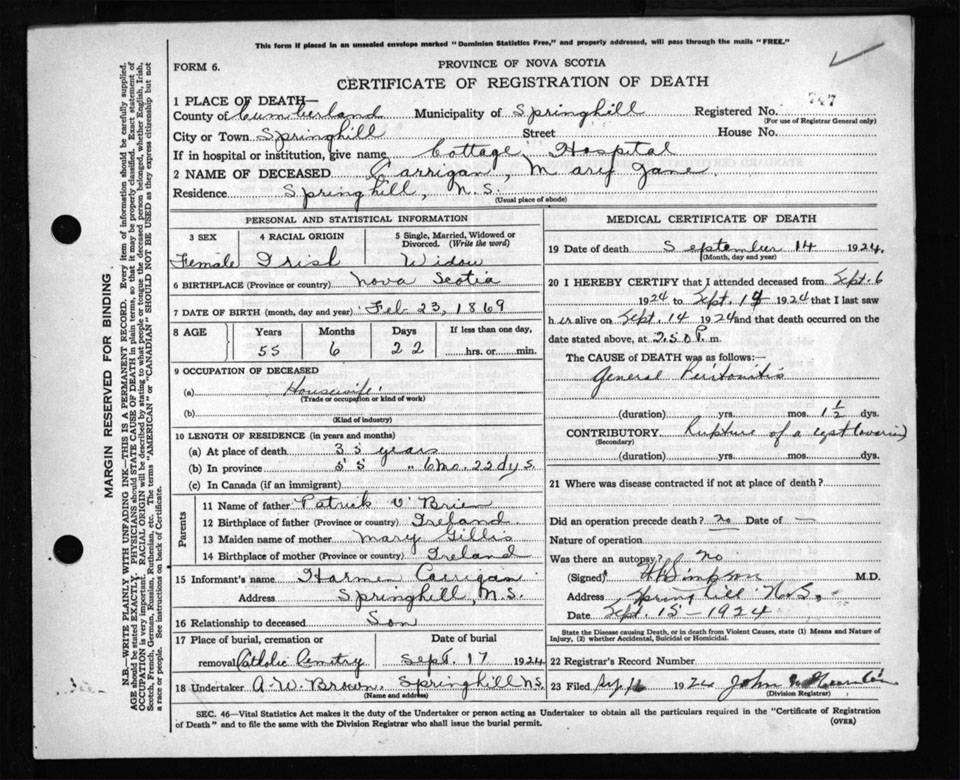 This form if placed in an unsealed envelope marked "Dominion Statistics Free," and properly addressed, will pass through the mails "FREE."
FORM 6.
PROVINCE OF NOVA SCOTIA
CERTIFICATE OF REGISTRATION OF DEATH
1 PLACE OF DEATH—
County of Cumberland Municipality of Springhill Registered No. 747
(For use of Registrar General only)
City or Town Springhill Street House No.
If in hospital or institution, give name Cottage Hospital
2 NAME OF DECEASED Carrigan, Mary Jane.
Residence Springhill, N.S.
(Usual place of abode)
PERSONAL AND STATISTICAL INFORMATION
3 SEX 4 RACIAL ORIGIN 5 Single, Married, Widowed or Divorced. (Write the word)
Female Irish Widow
6 BIRTHPLACE (Province or country) Nova Scotia
7 DATE OF BIRTH (month, day and year) Feb 23, 1869
8 AGE Years Months Days If less than one day,
55 6 22 hrs. or min.
9 OCCUPATION OF DECEASED
(a) Housewife
(Trade or occupation or kind of work)
(b)
(Kind of industry)
10 LENGTH OF RESIDENCE (in years and months)
(a) At place of death 35 years
(b) In province 55 " 6 mo. 22 dys.
(c) In Canada (if an immigrant)
Parents
11 Name of father Patrick O'Brien
12 Birthplace of father (Province or country) Ireland
13 Maiden name of mother Mary Gillis
14 Birthplace of mother (Province or country) Ireland
15 Informant's name Carrigan
Address Springhill, N.S.
16 Relationship to deceased Son
17 Place of burial, cremation or Date of burial
removal Catholic Cemetry Sept. 17 1924
18 Undertaker A.W. Brown, Springhill N.S.
(Name and address)
MEDICAL CERTIFICATE OF DEATH
19 Date of death September 14 1924.
(Month, day and year)
20 I HEREBY CERTIFY that I attended deceased from Sept. 6
1924 to Sept. 14 1924 that I last saw
her alive on Sept. 14 1924 and that death occurred on the
date stated above, at 2.50 P. m.
The CAUSE of DEATH was as follows:—
General Peritonitis
(duration) yrs. mos. 1 1/2 dys.
CONTRIBUTORY Rupture of a cyst (ovarian)
(Secondary)
(duration) yrs. mos. dys.
21 Where was disease contracted if not at place of death?
Did an operation precede death? no Date of —
Nature of operation
Was there an autopsy? No
(Signed) Simpson M.D.
Address Springhill N.S.
Date Sept. 15 - 1924
State the Disease causing Death, or in death from Violent Causes, state (1) Means and Nature of Injury, (2) whether Accidental, Suicidal or Homicidal.
22 Registrar's Record Number
23 Filed 1924 John
(Division Registrar)
SEC. 46—Vital Statistics Act makes it the duty of the Undertaker or person acting as Undertaker to obtain all the particulars required in the "Certificate of Registration
of Death" and to file the same with the Division Registrar who shall issue the burial permit. (OVER)
MARGIN RESERVED FOR BINDING
N.B.—WRITE PLAINLY WITH UNFADING INK—THIS IS A PERMANENT RECORD. Every item of information should be carefully supplied.
AGE should be stated EXACTLY. PHYSICIANS should STATE CAUSE OF DEATH in plain terms, so that it may be properly classified. Exact statement of
OCCUPATION is very important. RACIAL ORIGIN will be described by stating to what people or tongue the deceased person belonged, whether English, Irish,
Scotch, French, German, Russian, Ruthenian, etc. The terms "AMERICAN" or "CANADIAN" SHOULD NOT BE USED as they express citizenship but not
a race or people. See instructions on back of Certificate.